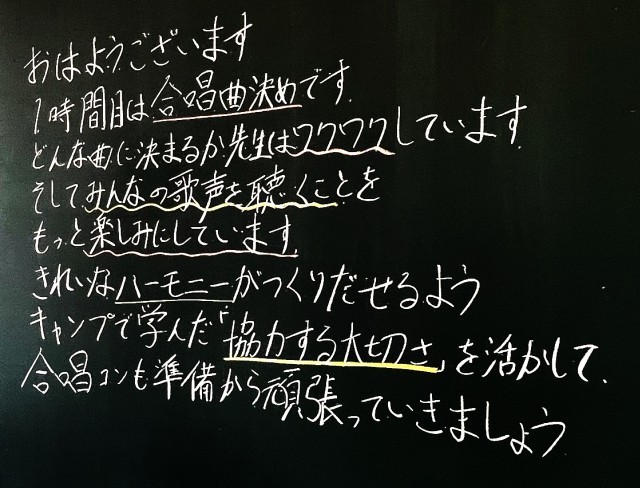 おはようございます
1時間目は合唱曲決めです.
どんな曲に決まるか先生はワクワクしています.
そしてみんなの歌声を聴くことを
もっと楽しみにしています.
きれいなハーモニーがつくりだせるよう
キャンプで学んだ「協力する大切さ」を活かして.
合唱コンも準備から頑張っていきましょう